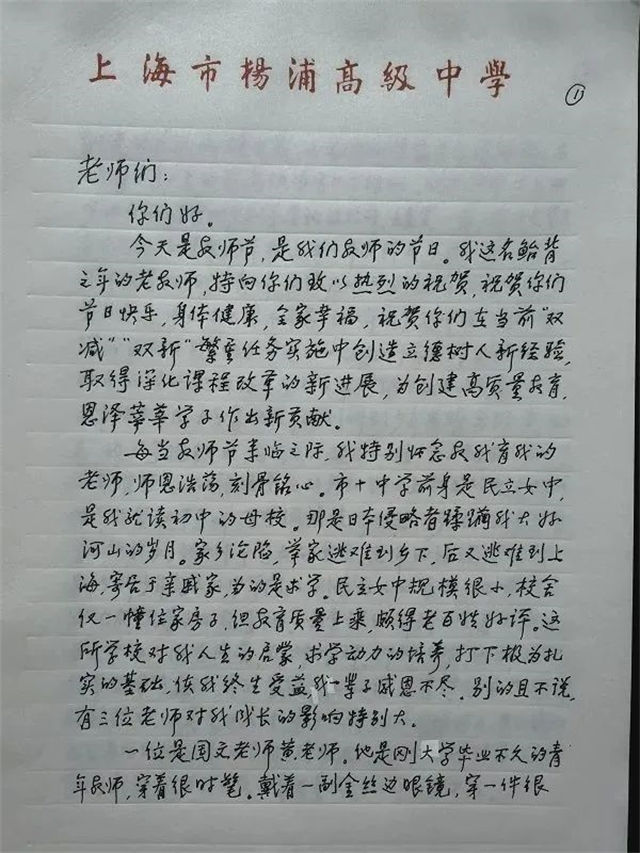 上海市楊浦高級中學
①
老师们：
你们好。
今天是教师节，是我们教师的节日。我这名鲐背
之年的老教师，特向你们致以热烈的祝贺，祝贺你们
节日快乐，身体健康，全家幸福，祝贺你们在当前“双
减”“双新”繁重任务实施中创造立德树人新经验，
取得深化课程改革的新进展，为创建高质量教育，
恩泽莘莘学子作出新贡献。
每当教师节来临之际，我特别怀念教我育我的
老师，师恩浩荡，刻骨铭心。市十中学前身是民立女中，
是我就读初中的母校。那是日本侵略者蹂躏我大好
河山的岁月。家乡沦陷，举家逃难到乡下，后又逃难到上
海，寄居于亲戚家，为的是求学。民立女中规模很小，校舍
仅一幢住家房子，但教育质量上乘，颇得老百姓好评。这
所学校对我人生的启蒙，求学动力的培养，打下极为扎
实的基础，使我终生受益，我一辈子感恩不尽。别的且不说，
有三位老师对我成长的影响特别大。
一位是国文老师黄老师。他是刚大学毕业不久的青
年教师，穿着很时髦。戴着一副金丝边眼镜，穿一件很